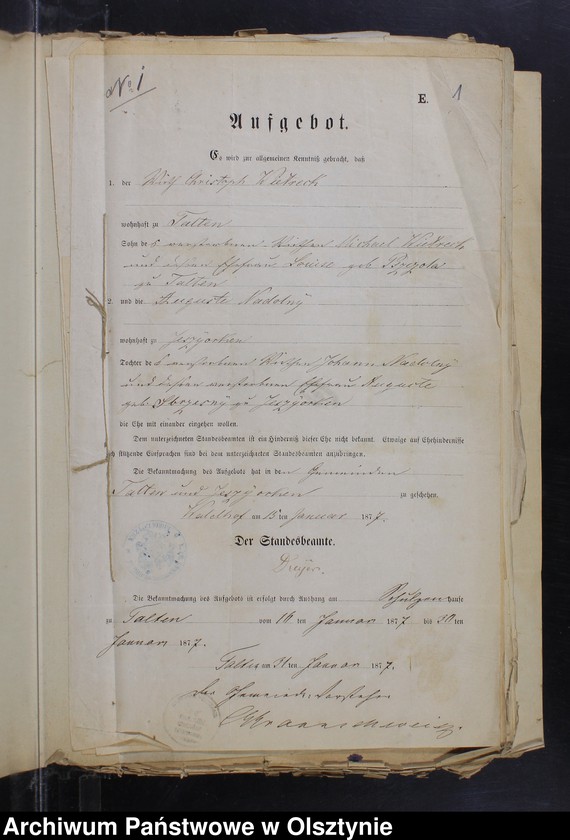 No 1
E. 1
Aufgebot.
Es wird zur allgemeinen Kenntniß gebracht, daß
1. der Wirth Christoph
wohnhaft zu Talten
Sohn des verstorbenen Michael
und dessen Ehefrau Louise geb
zu Talten
2. und die Auguste Nadolny
wohnhaft zu
Tochter des verstorbenen Johann Nadolny
und dessen verstorbenen Ehefrau Auguste
geb zu
die Ehe mit einander eingehen wollen.
Dem unterzeichneten Standesbeamten ist ein Hinderniß dieser Ehe nicht bekannt. Etwaige auf Ehehindernisse
sich stützende Einsprachen sind bei dem unterzeichneten Standesbeamten anzubringen.
Die Bekanntmachung des Aufgebots hat in den Gemeinden
Talten und zu geschehen.
am 15 ten Januar 1877.
Der Standesbeamte.
Die Bekanntmachung des Aufgebots ist erfolgt durch Aushang am Schulzenhause
zu Talten vom 16 ten Januar 1877 bis 30 ten
Januar 1877.
Talten am 31 ten Januar 1877.
Der Gemeinde Vorsteher
Archiwum Państwowe w Olsztynie